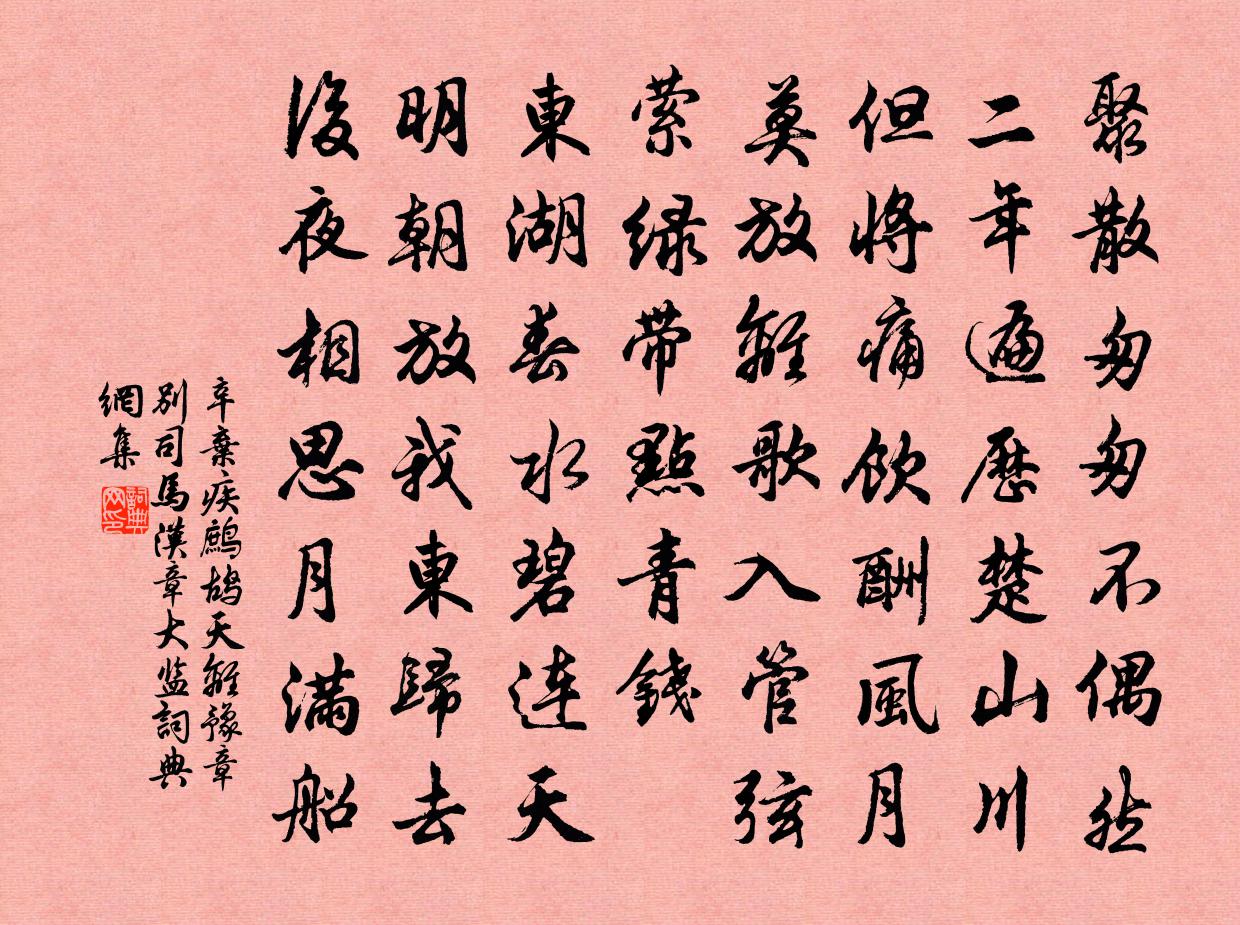 聚散匆匆不偶然
二年遍歷楚山川
但將痛飲酬風月
莫放離歌入管弦
縈绿带點青錢
東湖春水碧連天
明朝放我東歸去
後夜相思月滿船
辛棄疾鷓鴣天離豫章
別司馬漢章大监詞典
網集
詞典网印